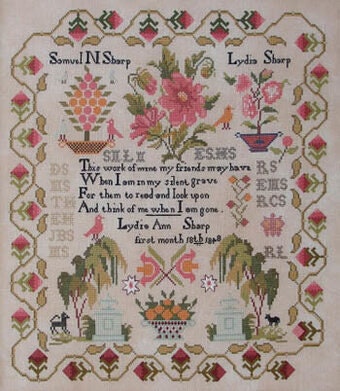 Samuel N Sharp
Lydia Sharp
ESHS
This work of mine my friends may have
When I am in my silent grave
For them to read and look upon
And think of me when I am gone
Lydia Ann Sharp
first month 18th
DS
MS
TH
EH
JBS
MS
RS
EMS
RCS
RL